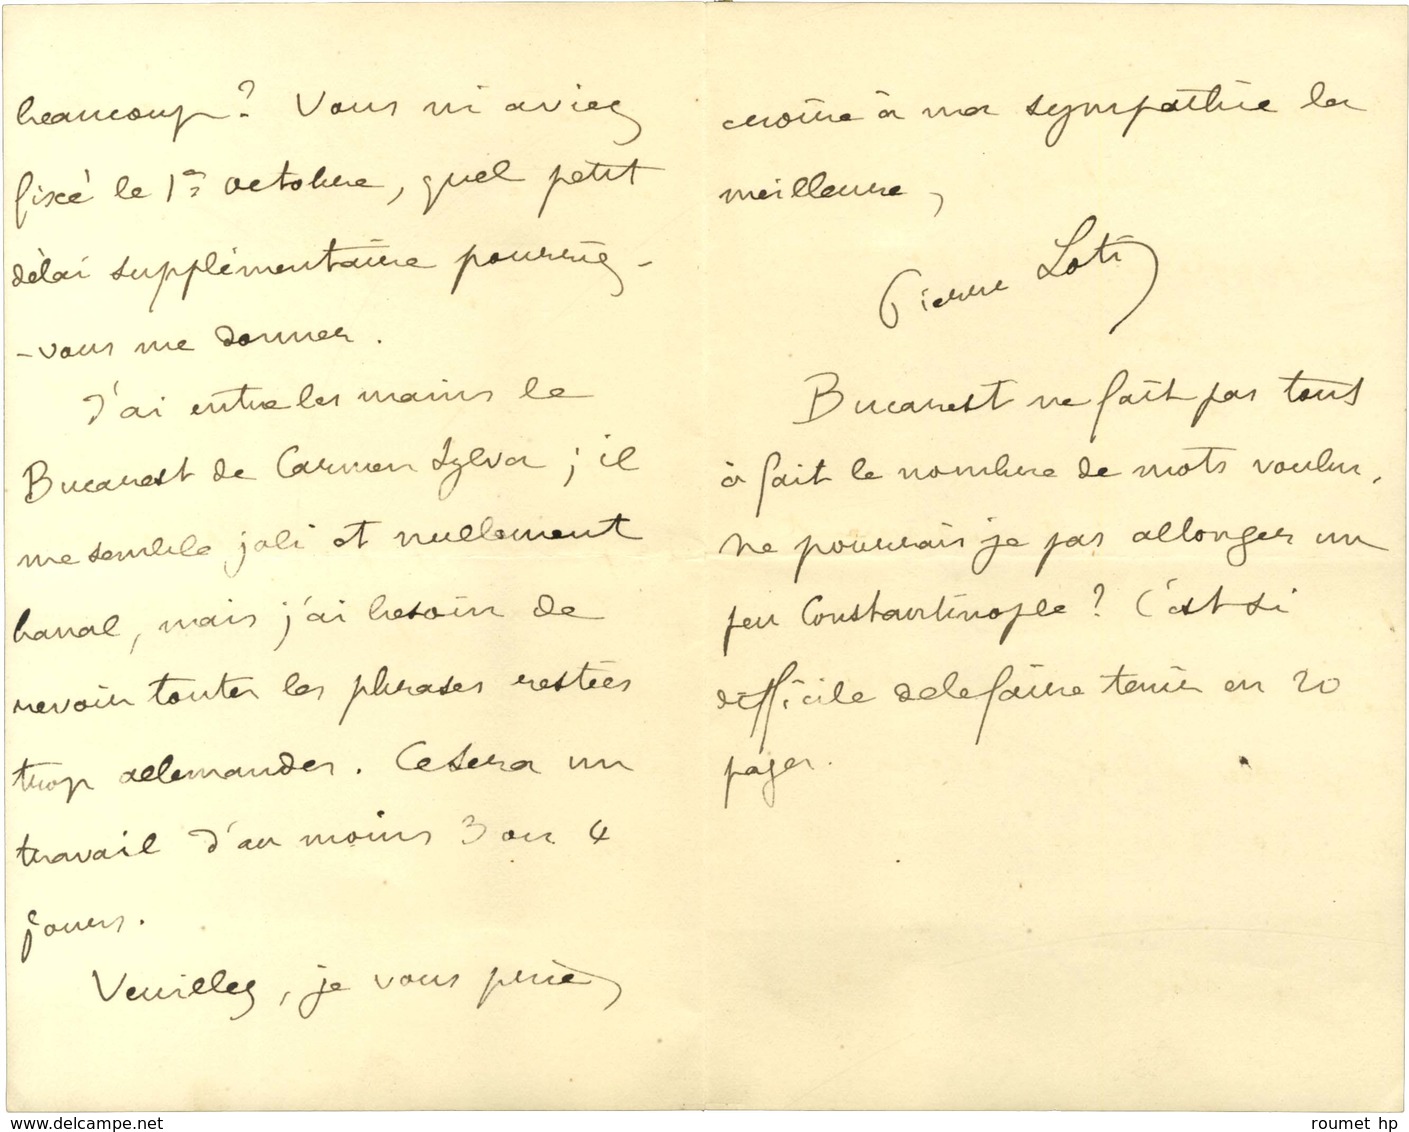 beaucoup? Vous m'aviez
fixé le 1er octobre, quel petit
délai supplémentaire pourriez-
-vous me donner.
J'ai entre les mains le
Bucarest de Carmen Sylva ; il
me semble joli et nullement
banal, mais j'ai besoin de
revoir toutes les phrases restées
trop allemandes. Ce sera un
travail d'au moins 3 ou 4
jours.
Veuillez, je vous prie,
croire à ma sympathie la
meilleure,
Pierre Loti
Bucarest ne fait pas tout
à fait le nombre de mots voulu,
ne pourrais je pas allonger un
peu Constantinople? C'est si
difficile de le faire tenir en 20
pages.
www.delcampe.net
roumet hp